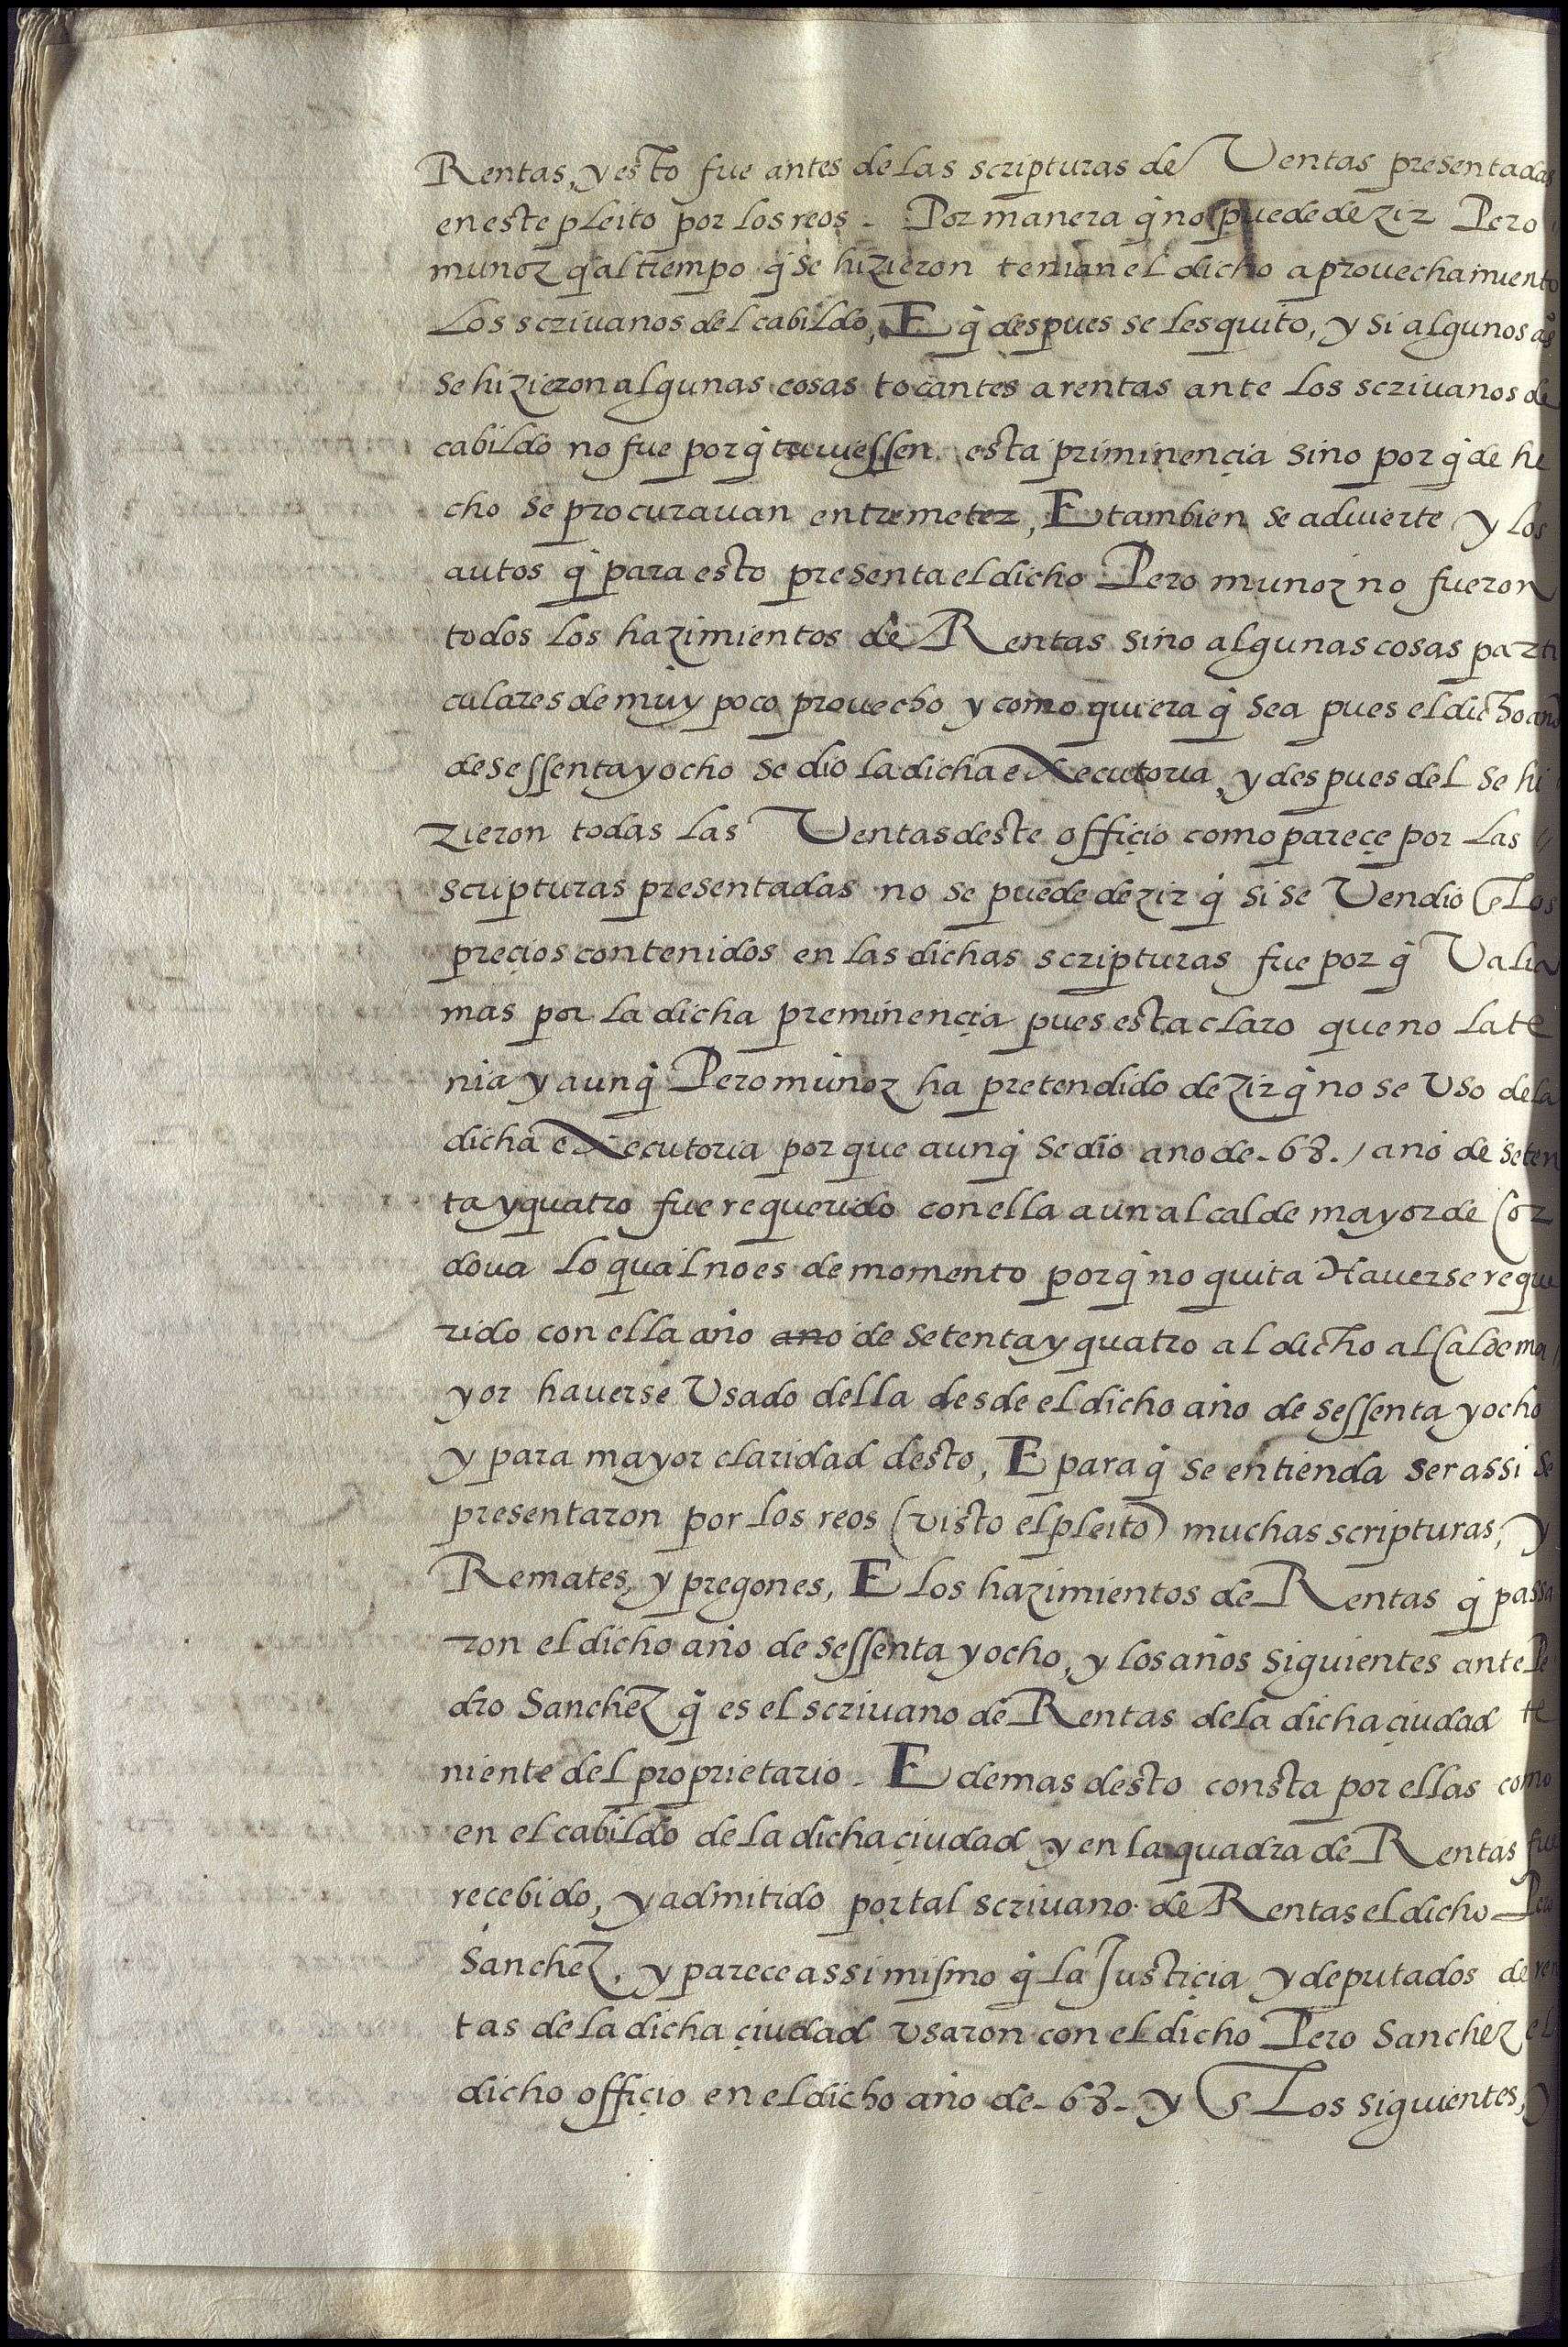 Rentas, y esto fue antes de las scripturas de Ventas presentadas
en este pleito por los reos. Por manera q̃ no puede dezir Pero
munoz q̃ al tiempo q̃ se hizieron tenian el dicho aprouechamiento
Los scriuanos del cabildo, E q̃ despues se les quito, y si algunos as
se hizieron algunas cosas tocantes a rentas ante los scriuanos de
cabildo no fue por q̃ tuuiessen esta priminençia sino por q̃ de he
cho se procurauan entremeter, E tambien se aduierte y los
autos q̃ para esto presenta el dicho Pero munoz no fueron
todos los hazimientos de Rentas sino algunas cosas parti
culares de muy poco prouecho y como quiera q̃ sea pues el dicho año
de sessenta y ocho se dio la dicha eXecutoria, y despues del se hi
zieron todas las Ventas deste offiçio como pareçe por las
scripturas presentadas no se puede dezir q̃ si se Vendio e Los
preçios contenidos en las dichas scripturas fue por q̃ Valia
mas por la dicha preminençia pues esta claro que no la te
nia y aunq̃ Pero munoz ha pretendido dezir q̃ no se Uso dela
dicha eXecutoria porque aunq̃ se dio ano de-68., ano de seten
ta y quatro fue requerido con ella a un alcalde mayor de Cor
doua lo qual no es de momento porq̃ no quita Hauerse reque
rido con ella año ano de setenta y quatro al dicho alCalde ma
yor hauerse Vsado della desde el dicho año de sessenta y ocho
y para mayor claridad desto, E para q̃ se entienda ser assi se
presentaron por los reos (visto el pleito) muchas scripturas, y
Remates, y pregones, E los hazimientos de Rentas q̃ passa
ron el dicho año de sessenta y ocho, y los años siguientes ante Pe
dro Sanchez q̃ es el scriuano de Rentas dela dicha çiudad te
niente del proprietario. E demas desto consta por ellas como
en el cabildo de la dicha çiudad y en la quadra de Rentas fue
recebido, y admitido por tal scriuano de Rentas el dicho Pero
Sanchez, y parece assi mismo q̃ la Justiçia y deputados de ren
tas de la dicha çiudad vsaron con el dicho Pero Sanchez el
dicho offiçio en el dicho año de-68- y Los siguientes, y